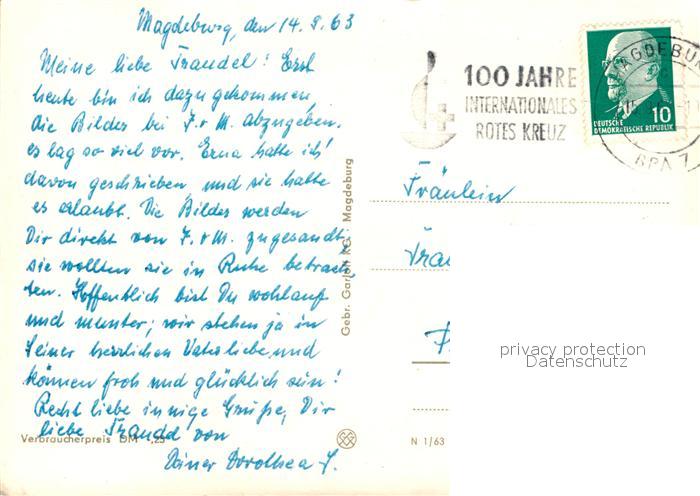 Magdeburg, den 14.9.63
Meine liebe Traudel! Erst
heute bin ich dazu gekommen,
die Bilder bei F. v M. abzugeben.
es lag so viel vor. Erna hatte ich
davon geschrieben und sie hatte
es erlaubt. Die Bilder werden
Dir direkt von F. v M. zugesandt,
sie wollten sie in Ruhe betrach
ten. Hoffentlich bist Du wohlauf
und munter; wir stehen ja in
Seiner herzlichen Vaterliebe und
können froh und glücklich sein!
Recht liebe innige Grüße, Dir
liebe Traudel von
Deiner Dorothea J.
Verbraucherpreis DM -,25
Gebr. Garloff KG. Magdeburg
N 1/63
100 JAHRE
INTERNATIONALES
ROTES KREUZ
MAGDEBURG
BPA 7
10
DEUTSCHE
DEMOKRATISCHE REPUBLIK
Fräulein
Trau
privacy protection
Datenschutz